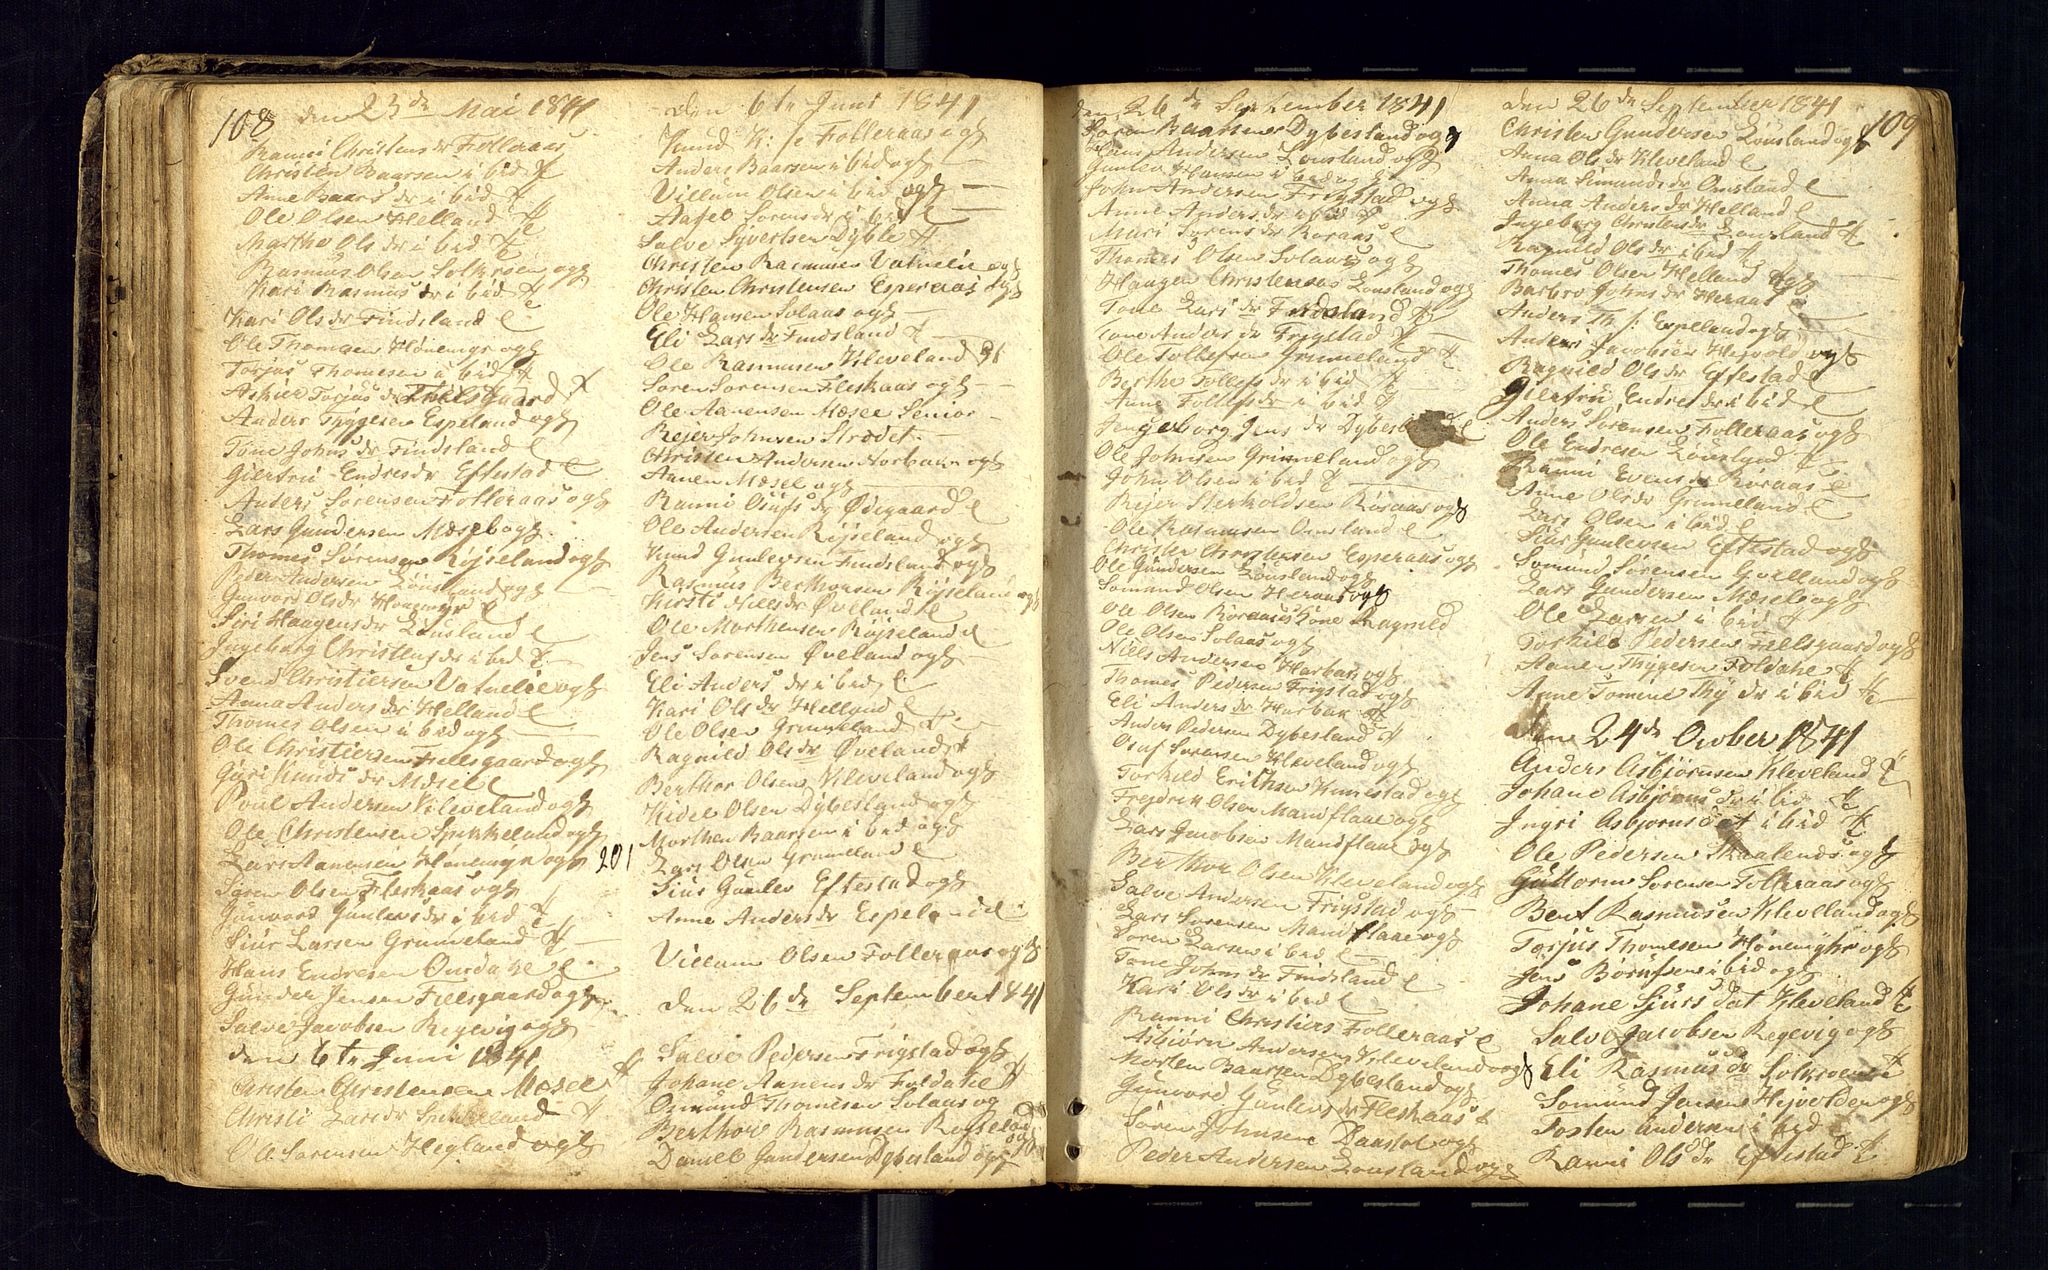 108 den 23de Mai 1841
Ranni Christensdr Folleraas
Christen Baarsen i bid
Anne Baarsdr i bid
Ole Olsen Helland
Marthe Olsdr i bid
Rasmus Olsen Solkroen og
Kari Rasmusdr i bid
Kari Olsdr Findsland
Ole Thomsen Hønemyr og
Torjus Thomesen i bid
Torjusdr Fielsgaard
Anders Thygesen Espeland og
Tone Johnsdr Findsland
Giertru Endresdr Eftestad
Anders Sørensen Folleraas og
Lars Gundersen Mæsel og
Thomes Sørensen Røiseland og
Peder Andersen Lønsland og
Gunvord Olsdr Hønemyr
Siri Haagensdr Lønsland
Ingeborg Christensdr i bid
Svend Christiersen Vatnelie og
Anna Andersdr Helland
Thomes Olsen i bid og
Ole Christiersen Fiellsgaard og
Guri Knudsdr Mæsel
Povel Andersen Kleveland og
Ole Christensen Spikkeland og
Lars Aanensen Hønemyr og
Søren Olsen Fleskaas og
Gunvord Gunlevsdr i bid
Siur Larsen Grunneland
Hans Endresen Ourdahl
Gunder Jensen Fiellsgaard og
Salve Jacobsen Regevig og
den 6te Juni 1841
Christen Christensen Mæsel
Christi Larsdr Spikkeland
Ole Sørensen Hegland og
den 6te Juni 1841
Knud K: Folleraas og
Anders Baarsen i bid og
Villum Olsen i bid og
Aasel Sørensdr i bid
Salve Syvertsen Dyble
Christen Rasmusen Vatnelie og
Christen Christensen Esperaas og
Ole Hansen Solaas og
Eli Larsdr Findsland
Ole Rasmusen Kleveland
Søren Sørensen Fleskaas og
Ole Aanensen Mæsel Senior
Reier Johnsen Strædet
Christen Andersen Harbak og
Aanen Mæsel og
Ranni Osufsdr Ødegaard
Ole Andersen Røiseland og
Knud Gunlevsen Findsland og
Rasmus Berthorsen Røiseland og
Kirsti Nielsdr Øveland
Ole Morthensen Røiseland
Jens Sørensen Øveland og
Eli Andersdr i bid
Kari Olsdr Helland
Ole Olsen Grunneland
Ragnild Olsdr Øveland
Berthor Olsen Kleveland og
Kidel Olsen Dybesland og
Morthen Baarsen i bid og
201 Lars Olsen Grunneland
Siur Gunlev Eftestad og
Anne Andersdr Espeland
Villum Olsen Folleraas og
den 26de September 1841
Salve Pedersen Frigstad og
Johane Aanensdr Foldahl
Osmund Thomesen Solaas og
Berthor Rasmusen Røiseland og
Daniel Gundersen Dybesland og
den 26de September 1841
Søren Baarsen Dybesland og
Hans Andersen Lønsland og
Gunlev Hansen i bid og
John Andersen Frigstad og
Anne Andersdr i bid
Mari Sørensdr Roraas
Thomes Olsen Solaas og
Haagen Christensen Lønsland og
Tone Larsdr Findsland
Tone Andersdr Frigstad
Ole Tollefsen Grunneland
Berthe Tollefsdr i bid
Anne Tollefsdr i bid
Jengeborg Jensdr Dybesland
Ole Johnsen Grunneland og
John Olsen i bid
Reier Sterkoldsen Røsaas og
Ole Rasmusen Omsland
Christen Christensen Esperaas og
Ole Gundersen Lønsland og
Somund Olsen Heraas og
Ole Olsen Røraas kone Ragnild
Ole Olsen Solaas og
Niels Andersen Harbak og
Thomes Pedersen Frigstad og
Eli Andersdr Harbak
Anders Pedersen Dybesland
Osuf Sørensen Kleveland og
Torkild Erithsen Kunestad og
Fredrik Olsen Mandflaae og
Lars Jacobsen Mandflaae og
Berthor Olsen Kleveland og
Salve Andersen Frigstad og
Lars Sørensen Mandflaae og
Søren Larsen i bid
Tone Johnsdr Findsland
Kari Olsdr i bid
Ranni Christiers Folleraas
Asbiørn Andersen Kleveland og
Morten Baarsen Dybesland og
Gunvord Gunlevsdr Fleskaas
Søren Johnsen Daastol og
Peder Andersen Lønsland og
den 26de September 1841 109
Christen Gundersen Lønsland og
Anna Olsdr Kleveland
Anna Simundsdr Omsland
Anna Andersdr Helland
Ingeborg Christensdr Lønsland
Ragnild Olsdr i bid
Thomes Olsen Helland og
Barbro Johnsdr Heraas
Anders Th: Espeland og
Anders Jacobsen Heivold og
Ragnild Olsdr Eftestad
Giertru Endresdr i bid
Anders Sørensen Folleraas og
Ole Endresen Lønsland
Ranni Evensdr Roraas
Anne Olsdr Grunneland
Lars Olsen i bid
Siur Gunlevsen Eftestad og
Somund Sørensen Qvelland og
Lars Gundersen Mæsel og
Ole Larsen i bid
Torkild Pedersen Fiellsgaard og
Aanen Thygesen Foldahl
Anne Tomene Thydr i bid
den 24de Ocober 1841
Anders Asbjørnsen Kleveland
Johane Asbjørnsdr i bid
Ingri Asbjørnsdat i bid
Ole Pedersen Skaalends og
Guttorm Sørensen Folleraas og
Bent Rasmusen Klevelland og
Torjus Thomesen Hønemyhr og
Jens Børufsen i bid og
Johane Siursdat Kleveland
Salve Jacobsen Regevig og
Eli Rasmusdr Solkroen
Somund Jensen Heivolden og
Tosten Andersen i bid
Ranni Olsdr Eftestad